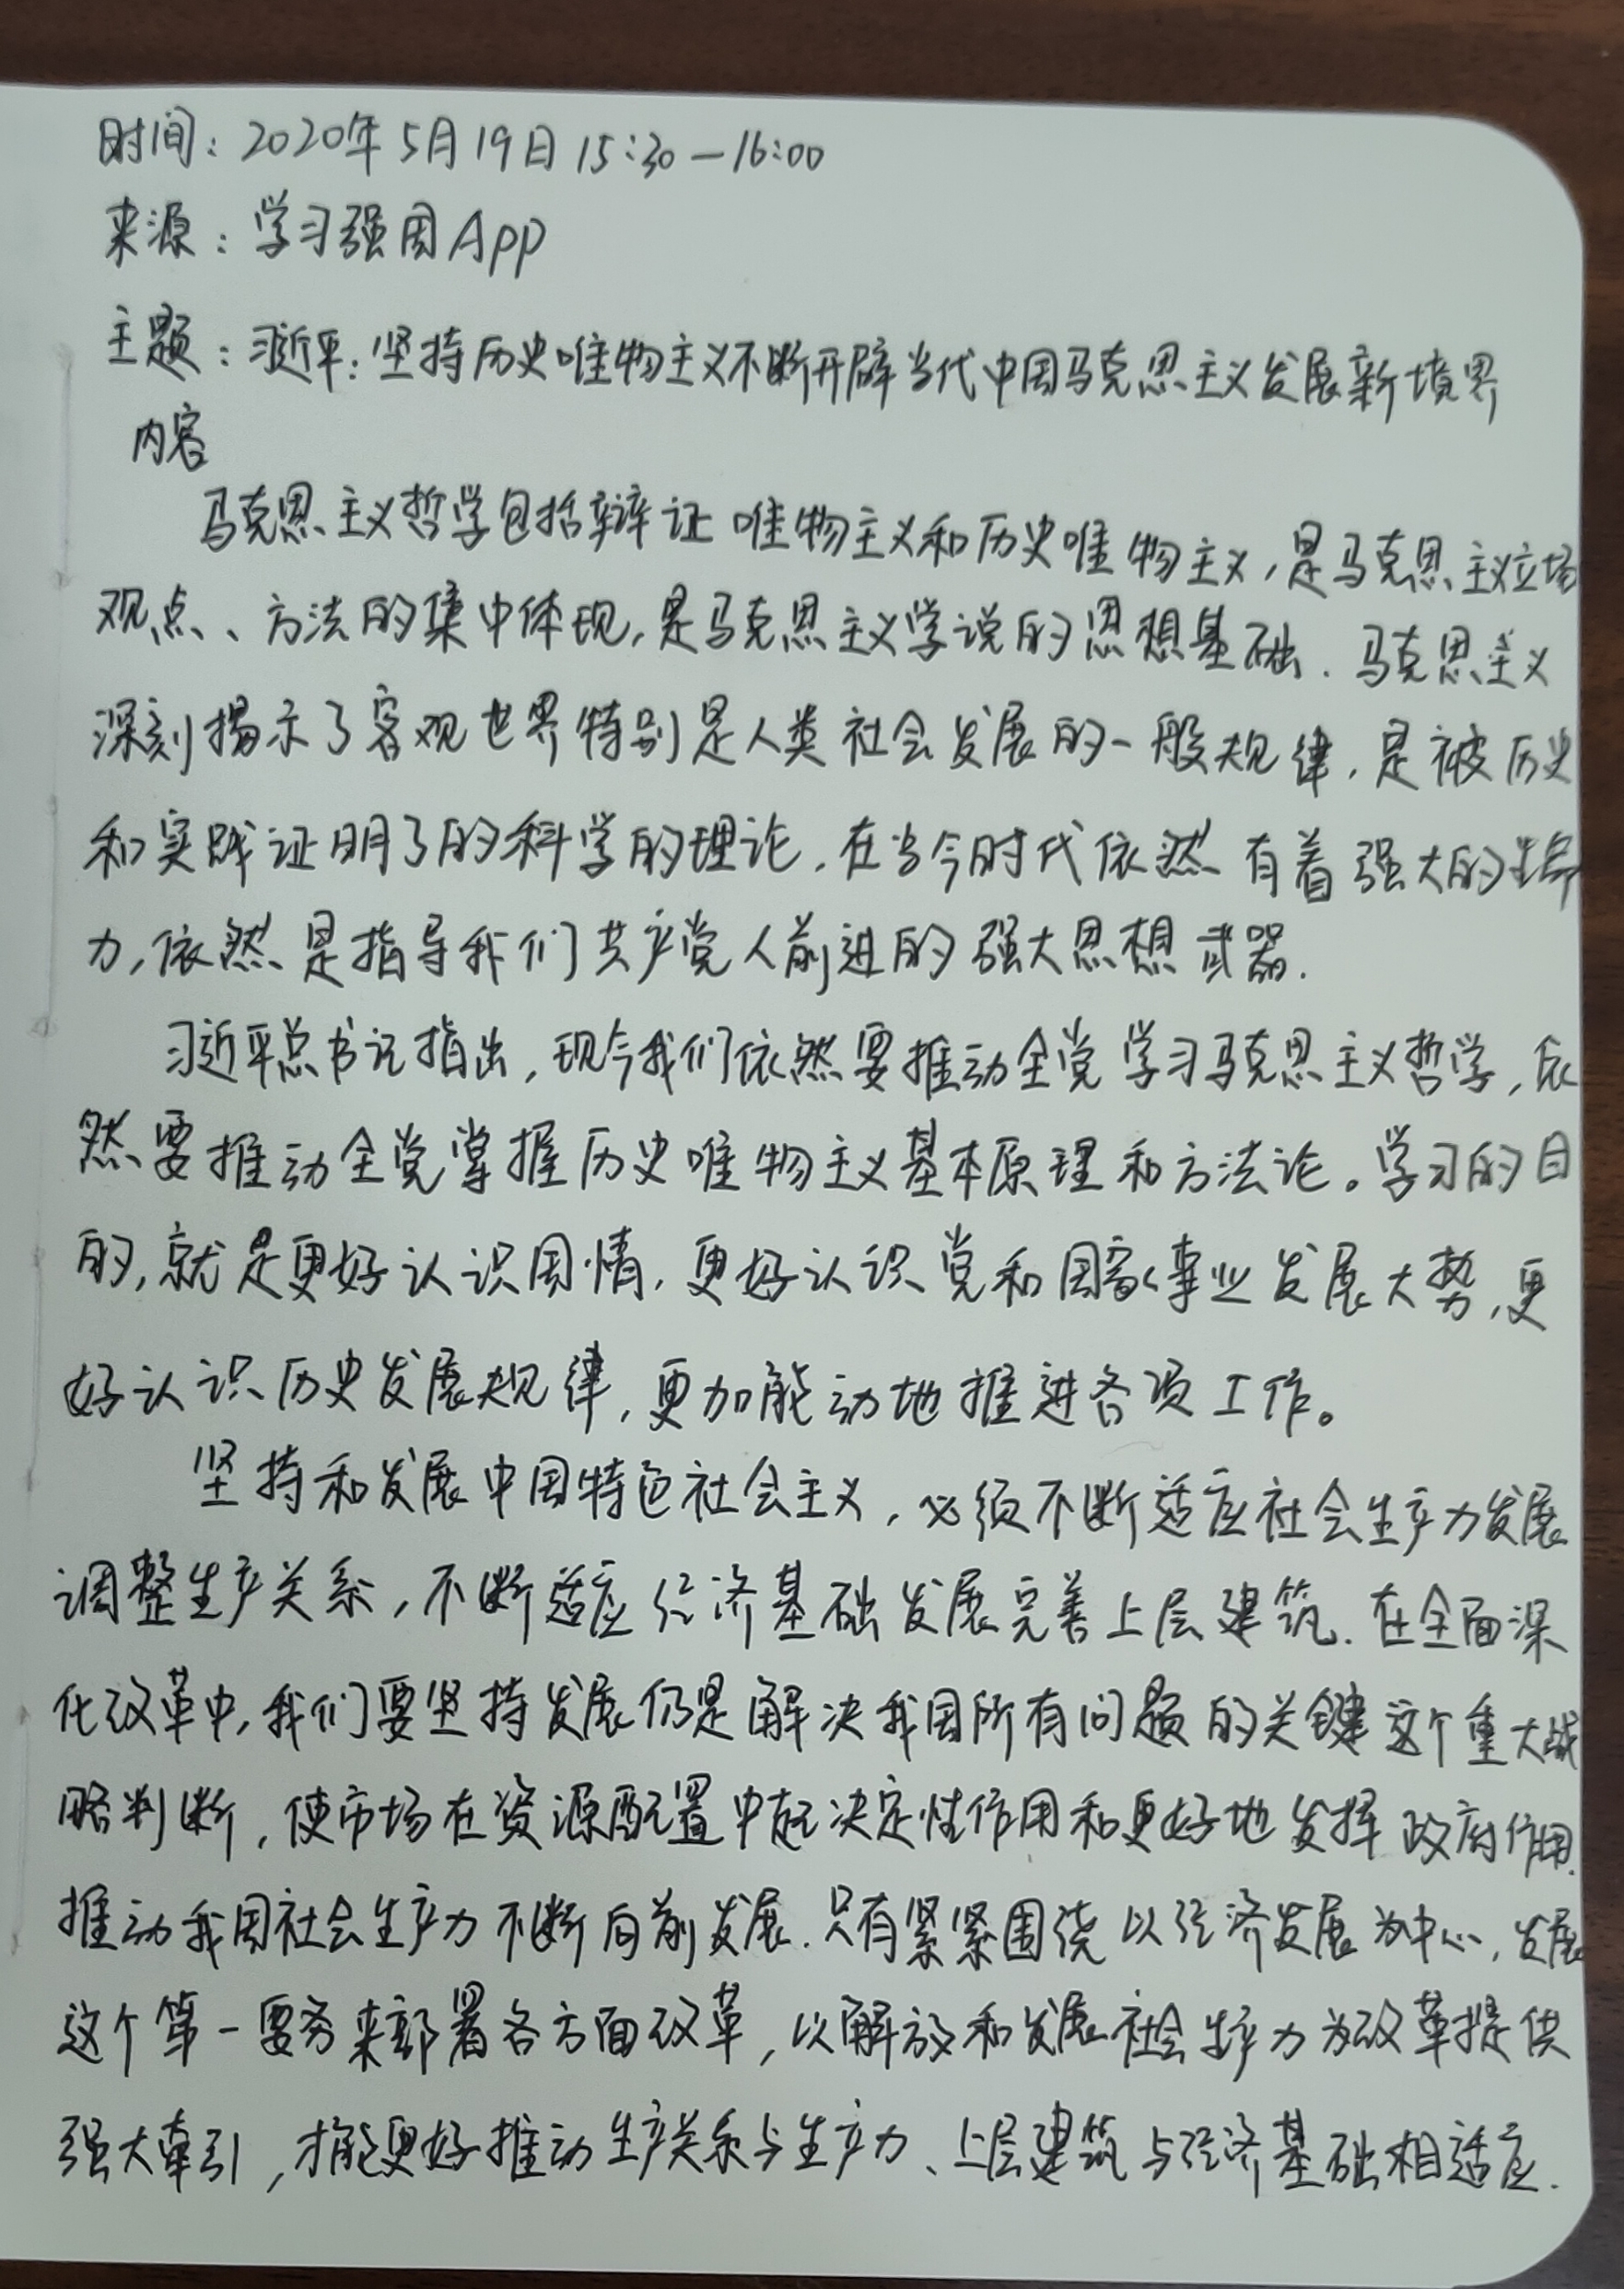 时间：2020年5月19日 15:30—16:00
来源：学习强国App
主题：习近平：坚持历史唯物主义不断开辟当代中国马克思主义发展新境界
内容
马克思主义哲学包括辩证唯物主义和历史唯物主义，是马克思主义立场
观点、方法的集中体现，是马克思主义学说的思想基础．马克思主义
深刻揭示了客观世界特别是人类社会发展的一般规律，是被历史
和实践证明了的科学的理论，在当今时代依然有着强大的生命
力，依然是指导我们共产党人前进的强大思想武器．
习近平总书记指出，现今我们依然要推动全党学习马克思主义哲学，依
然要推动全党掌握历史唯物主义基本原理和方法论。学习的目
的，就是更好认识国情，更好认识党和国家事业发展大势，更
好认识历史发展规律，更加能动地推进各项工作。
坚持和发展中国特色社会主义，必须不断适应社会生产力发展
调整生产关系，不断适应经济基础发展完善上层建筑．在全面深
化改革中，我们要坚持发展仍是解决我国所有问题的关键这个重大战
略判断，使市场在资源配置中起决定性作用和更好地发挥政府作用．
推动我国社会生产力不断向前发展．只有紧紧围绕以经济发展为中心，发展
这个第一要务来部署各方面改革，以解放和发展社会生产力为改革提供
强大牵引，才能更好推动生产关系与生产力、上层建筑与经济基础相适应．